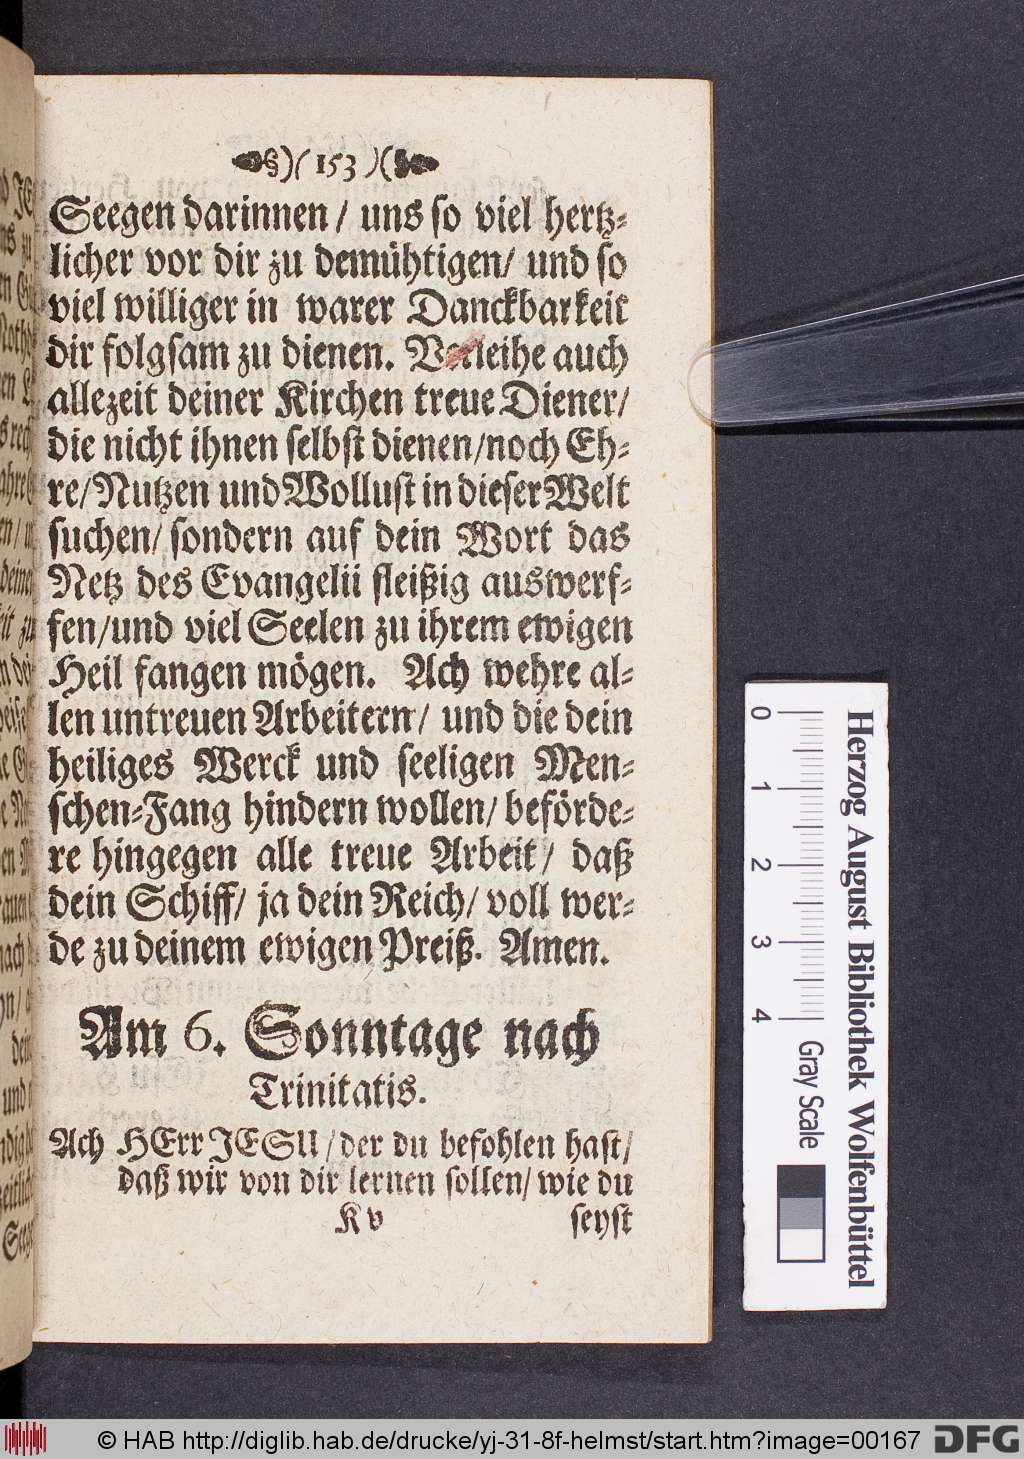 §)( 153 )(§
Seegen darinnen / uns so viel hertz-
licher vor dir zu demühtigen/ und so
viel williger in warer Danckbarkeit
dir folgsam zu dienen. Verleihe auch
allezeit deiner Kirchen treue Diener/
die nicht ihnen selbst dienen/noch Eh-
re/Nutzen und Wollust in dieser Welt
suchen/ sondern auf dein Wort das
Netz des Evangelii fleißig auswerf-
fen/und viel Seelen zu ihrem ewigen
Heil fangen mögen. Ach wehre al-
len untreuen Arbeitern/ und die dein
heiliges Werck und seeligen Men-
schen-Fang hindern wollen/ beförde-
re hingegen alle treue Arbeit/ daß
dein Schiff/ ja dein Reich/ voll wer-
de zu deinem ewigen Preiß. Amen.
Am 6. Sonntage nach
Trinitatis.
Ach HErr JESU/der du befohlen hast/
daß wir von dir lernen sollen/ wie du
K v seyst
Herzog August Bibliothek Wolfenbüttel
0 1 2 3 4
Gray Scale
© HAB http://diglib.hab.de/drucke/yj-31-8f-helmst/start.htm?image=00167
DFG